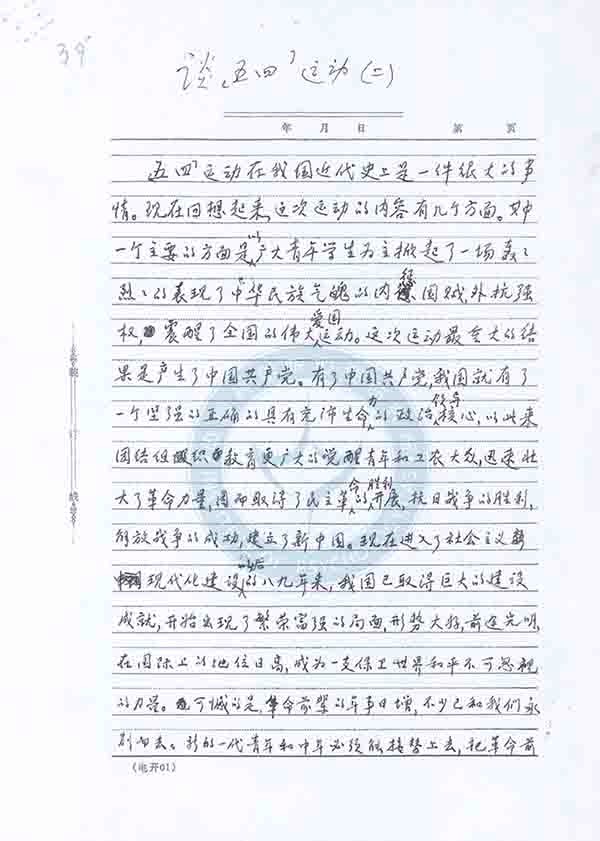 39
谈“五四”运动(二)
年 月 日 第 页
五四”运动在我国近代史上是一件很大的事
情。现在回想起来,这次运动的内容有几个方面。其中
一个主要的方面是以广大青年学生为主掀起了一场轰轰
烈烈的表现了中华民族气魄的内惩国贼,外抗强
权,震醒了全国的伟大爱国运动。这次运动最重大的结
果是产生了中国共产党。有了中国共产党,我国就有了
一个坚强的正确的具有充沛生命力的政治领导核心,以此来
团结组织教育更广大的觉醒青年和工农大众,迅速壮
大了革命力量,因而取得了民主革命的胜利开展,抗日战争的胜利,
解放战争的成功,建立了新中国。现在进入了社会主义
现代化建设以后的八九年来,我国已取得巨大的建设
成就,开始出现了繁荣富强的局面,形势大好,前途光明,
在国际上的地位日高,成为一支保卫世界和平不可忽视
的力量。可憾的是,革命前辈的年事日增,不少已和我们永
别而去。新的一代青年和中年必须能接替上去,把革命前
(电开01)